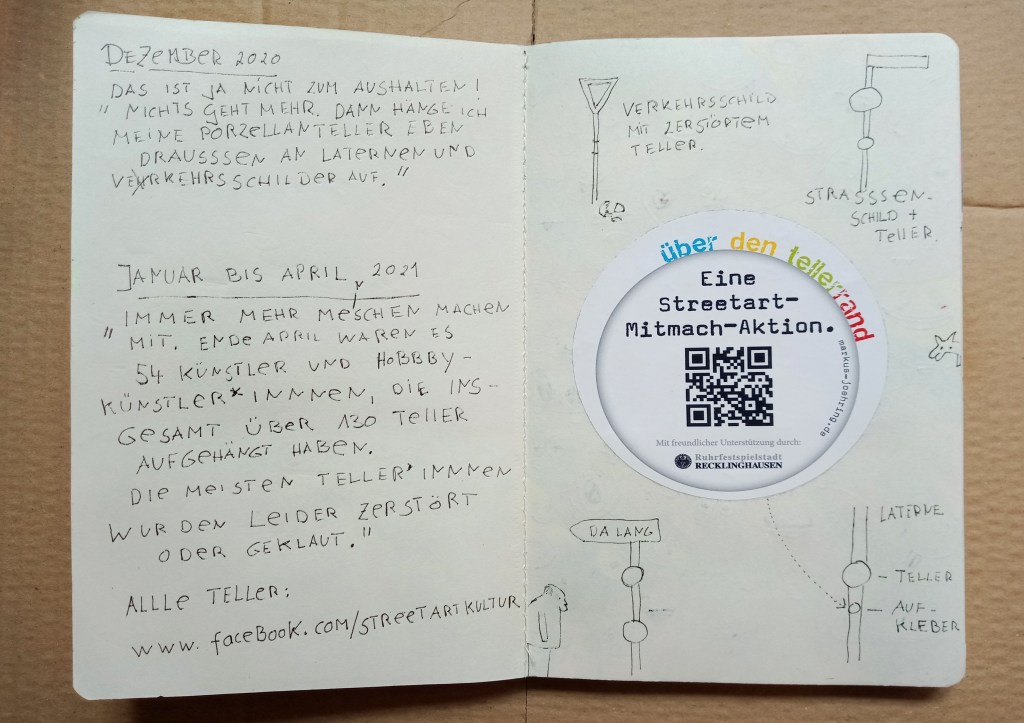 DEZEMBER 2020
DAS IST JA NICHT ZUM AUSHALTEN!
" NICHTS GEHT MEHR. DANN HÄNGE ICH
MEINE PORZELLANTELLER EBEN
DRAUSSSEN AN LATERNEN UND
VERKEHRSSCHILDER AUF. "
JANUAR BIS APRIL 2021
" IMMER MEHR MENSCHEN MACHEN
MIT. ENDE APRIL WAREN ES
54 KÜNSTLER UND HOBBBY-
KÜNSTLER*INNNEN, DIE INS-
GESAMT ÜBER 130 TELLER
AUFGEHÄNGT HABEN.
DIE MEISTEN TELLER*INNNEN
WURDEN LEIDER ZERSTÖRT
ODER GEKLAUT. "
ALLLE TELLER:
www.faceBook.com/STREETARTKULTUR
VERKEHRSSCHILD
MIT ZERSTÖRTEM
TELLER.
STRASSSEN-
SCHILD +
TELLER.
über den tellerrand
Eine
Streetart-
Mitmach-Aktion.
markus-joahring.de
Mit freundlicher Unterstützung durch:
Ruhrfestspielstadt
RECKLINGHAUSEN
DA LANG
LATERNE
- TELLER
- AUF-
KLEBER